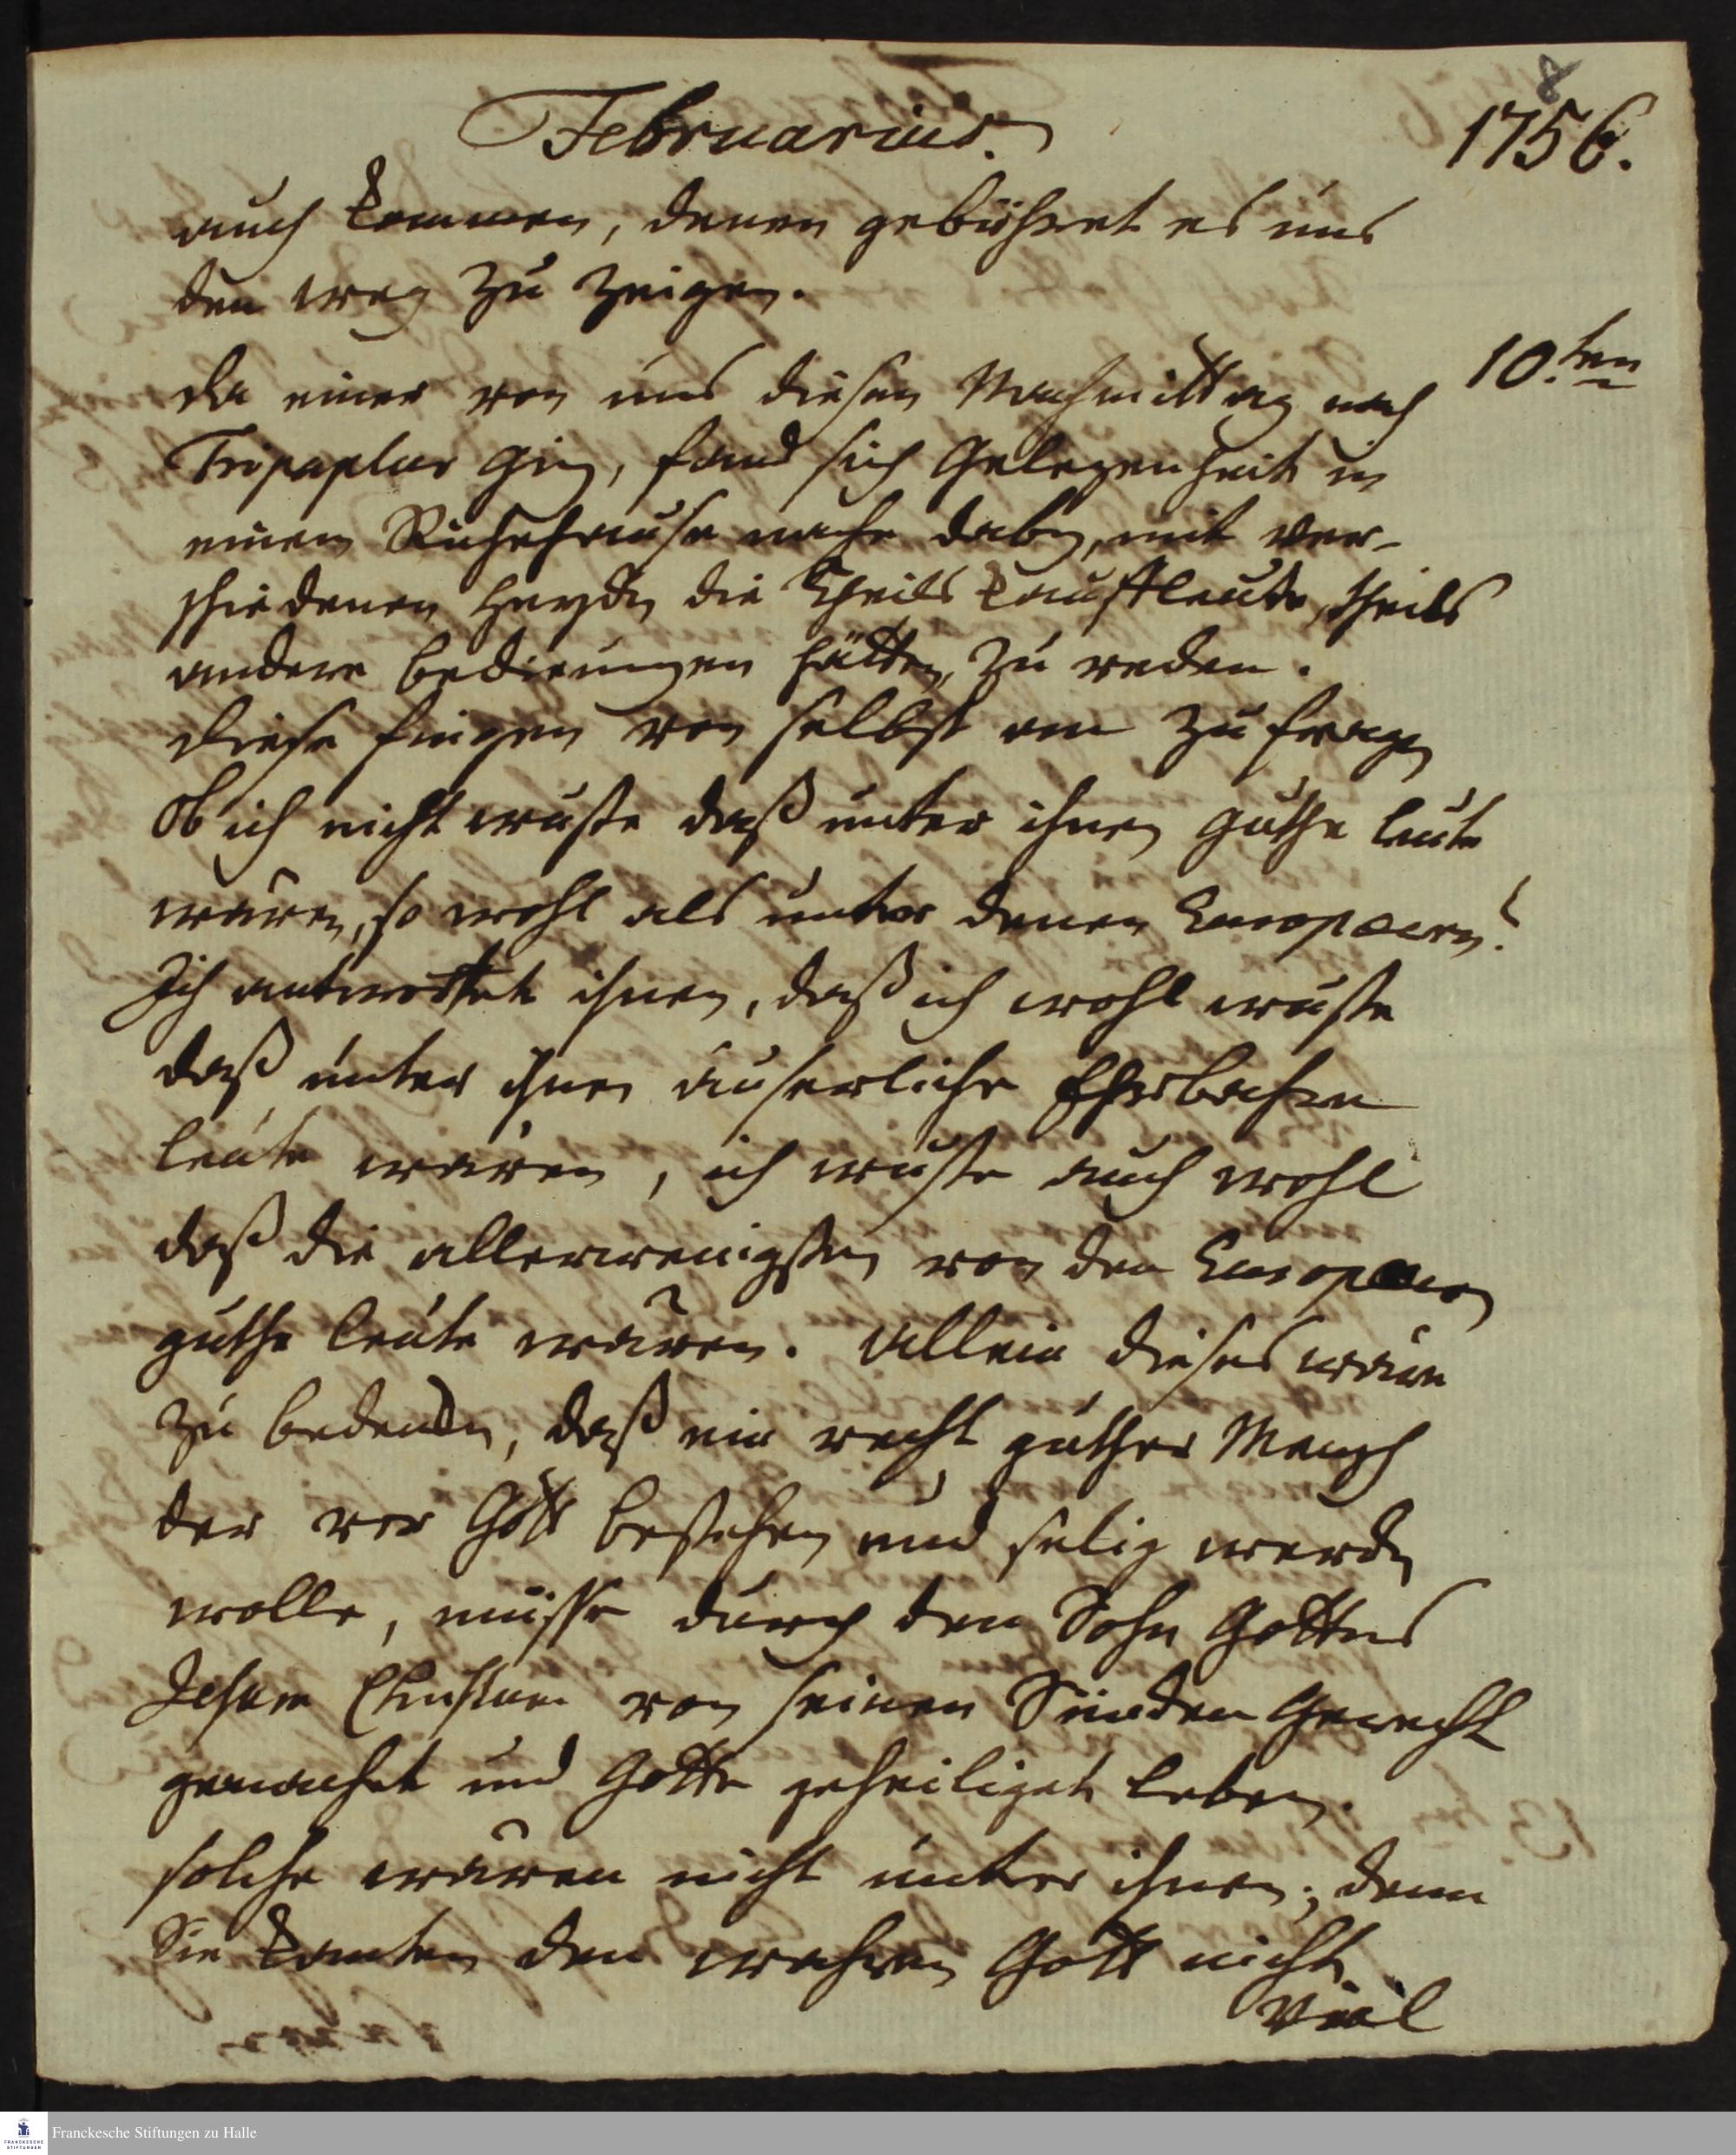 8
Februarius.
1756.
auch kommen, denen gebühret es uns
den weg zu zeigen.
10.ten
Da einer von uns diesen Nachmittag nach
Tripaplur ging, fand sich Gelegenheit in
einem Ruhehause nahe dabey, mit ver-
schiedenen Heyden die theils Kauffleute, theils
andere bedienungen hätten, zu reden.
Diese fingen von selbst an zu fragen
Ob ich nicht wuste daß unter ihnen guthe leute
wären, so wohl als unter denen Europaeern?
Ich antwortete ihnen, daß ich wohl wuste
daß unter ihnen äuserliche Ehrbahre
leute wären, ich wuste auch wohl
daß die allerwenigsten von den Europaeern
guthe leute wären. Allein dieses wäre
zu bedencken, daß ein recht guther Mensch
der vor Gott bestehen und selig werden
wolle, müsse durch den Sohn Gottes
Jesum Christum von seinen Sünden Gerecht
gemachet und Gotte geheiliget leben.
solche wären nicht unter ihnen; denn
Sie kanten den wahren Gott nicht.
Viel
Franckesche Stiftungen zu Halle